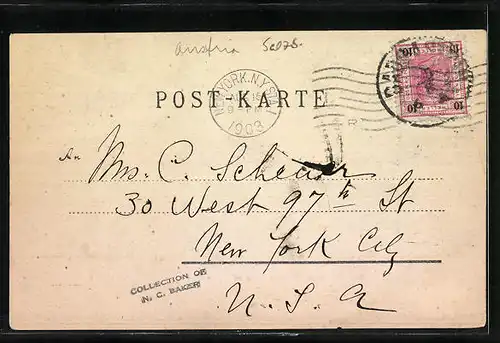 Austria
POST-KARTE
NEW YORK, N.Y. STA
1903
10 10
10 10
An
Mrs. C. Scheuer
30 West 97th St
New York City
U. S. A
COLLECTION OF
N. C. BAKER